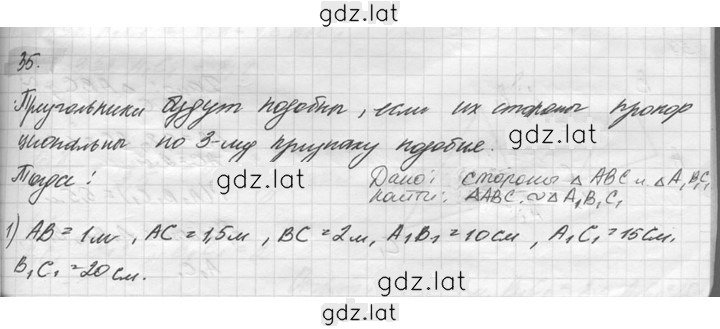 gdz.lat
35.
Треугольники будут подобны, если их стороны пропор
gdz.lat
циональны по 3-му признаку подобие.
gdz.lat
Тогда:
Дано: стороны △ABC и △A₁B₁C₁
Найти: △ABC ∾ △A₁B₁C₁
1) AB = 1м, AC = 1,5м, BC = 2м, A₁B₁ = 10см, A₁C₁ = 15см.
B₁C₁ = 20см.
gdz.lat
gdz.lat